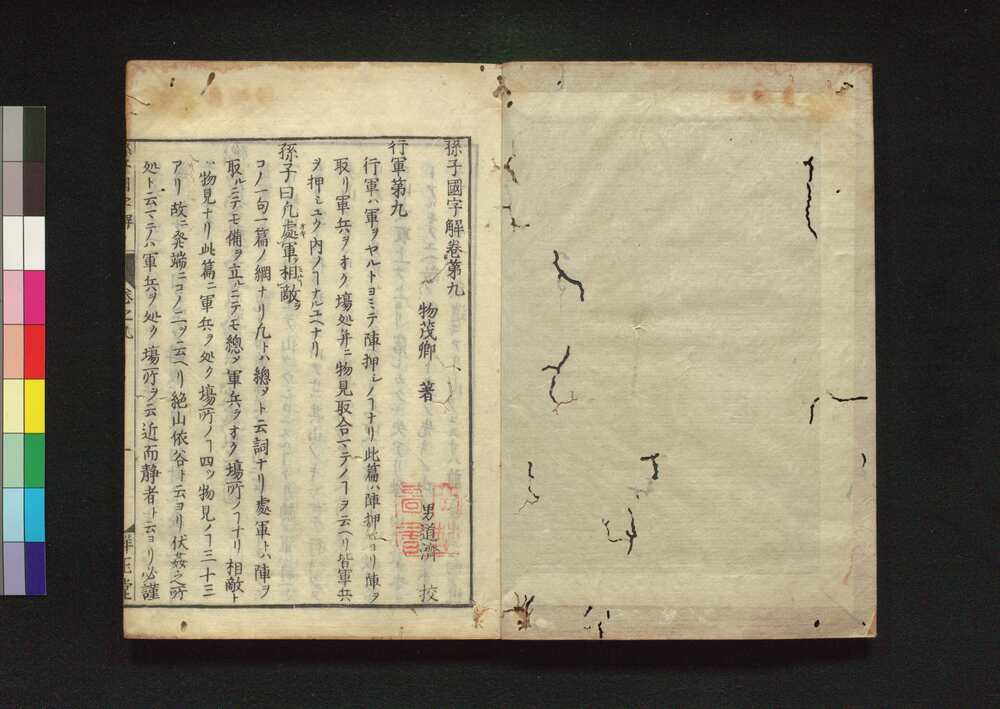 孫子國字解卷第九
物茂卿 著
男道濟 校
行軍第九
行軍ハ軍ヲヤルトヨミテ陣押シノヿナリ此篇ハ陣押ヨリ陣ヲ
取リ軍兵ヲオク塲処并ニ物見取合マテノヿヲ云ヘリ皆軍兵
ヲ押シユク内ノヿナルユヘナリ
孫子曰凡處軍相敵
コノ一句一篇ノ綱ナリ凡トハ總ヲト云詞ナリ處軍トハ陣ヲ
取ルニテモ備ヲ立ルニテモ總ヲ軍兵ヲオク塲所ノヿナリ相敵ト
ハ物見ナリ此篇ニ軍兵ヲ処ク塲所ノヿ四ツ物見ノヿ三十三
アリ故ニ発端ニコノ二ツヲ云ヘリ絶山依谷ト云ヨリ伏姦之所
処ト云マテハ軍兵ヲ処ク塲所ヲ云近而静者ト云ヨリ必謹